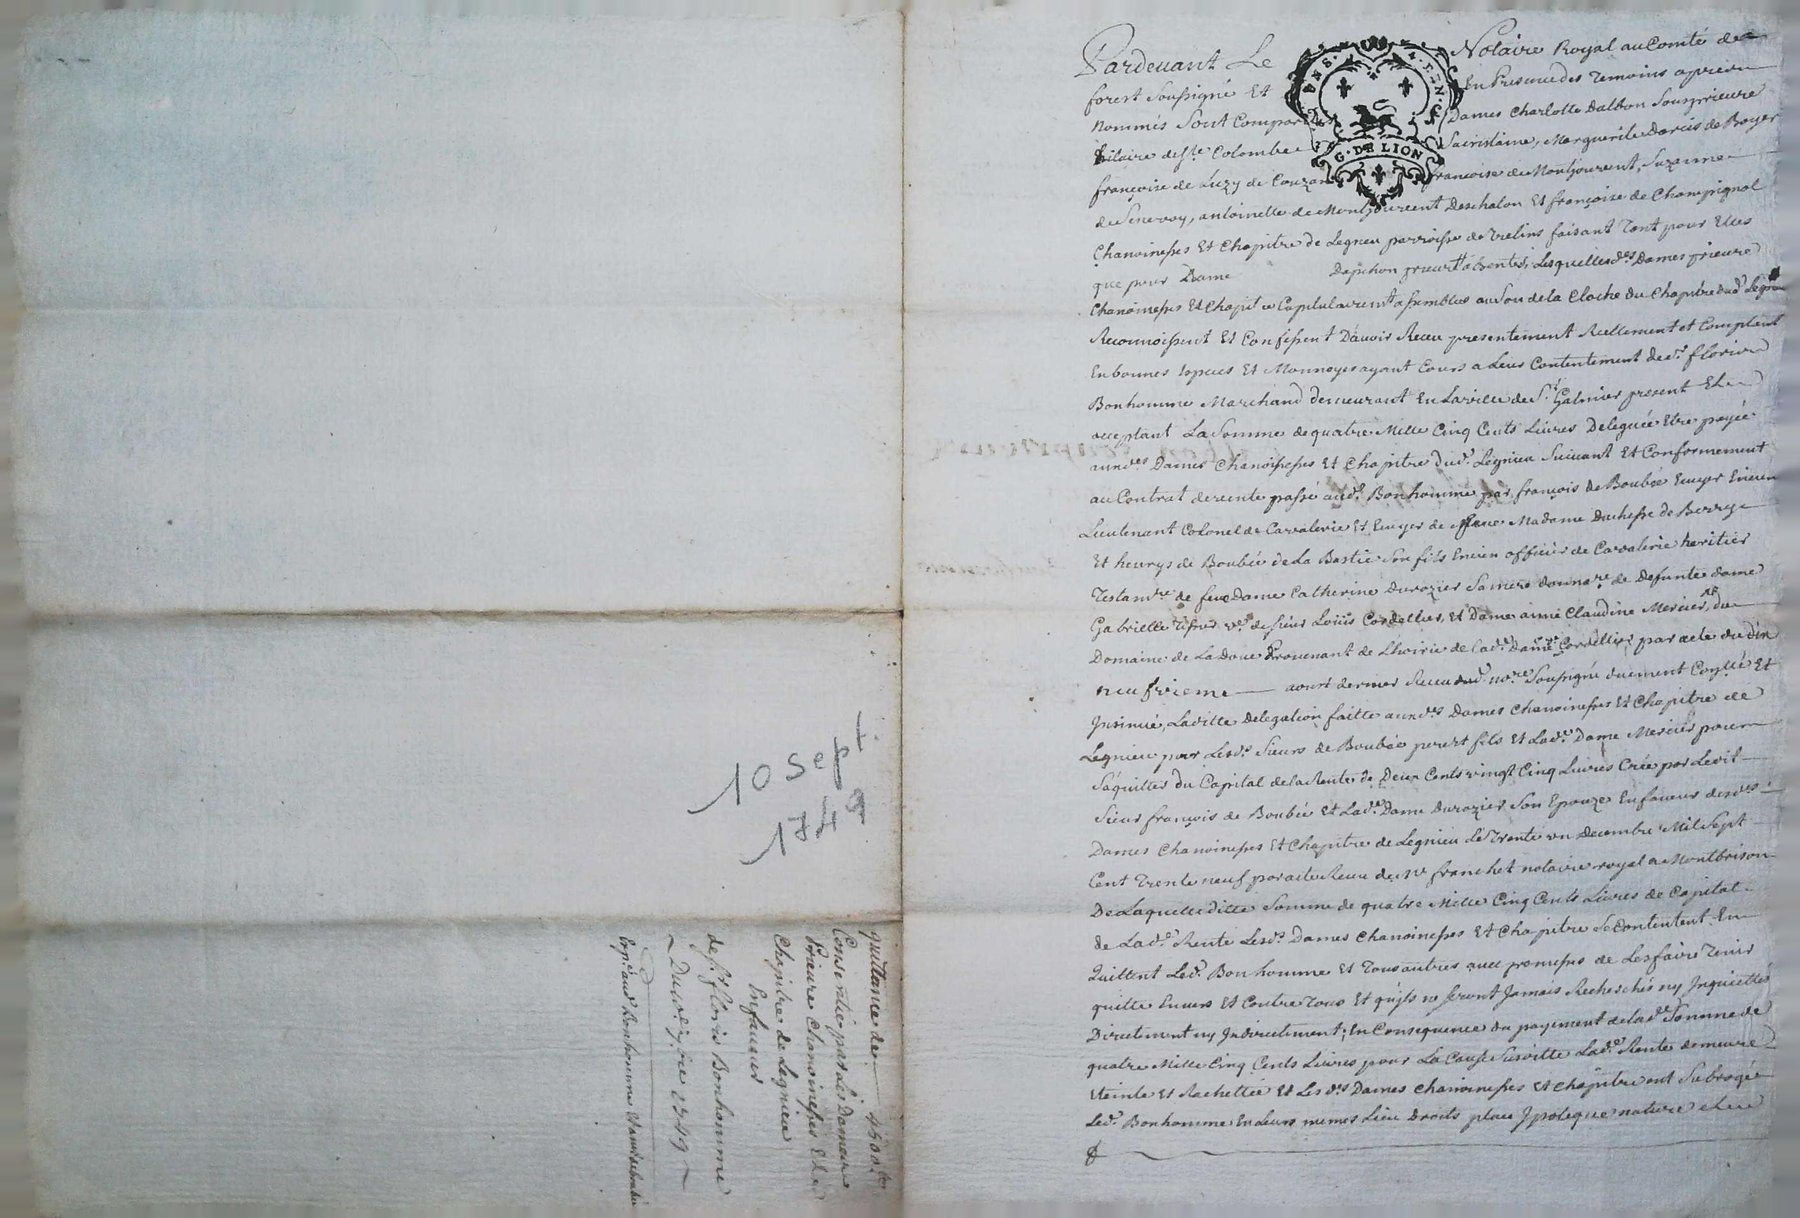 Pardevant Le Notaire Royal au Comté de
forest Soussigné Et En Presence des Temoins apres
Nommés Sont Comparu Dames Charlotte Dalbon Sousprieure
hilaire de Ste Colombe Sacristaine, Marguerite Darcis de
françoise de Luzy de Couzan françoise de Montjouvent, Suzanne
de Senevoy, antoinette de Montjouvent Deschalon Et françoise de Champignol
Chanoinesses Et Chapitre de Legneu parroisse de Trelins faisant Tant pour Elles
que pour Dame Dapchon prieure absente, Lesquelles des Dames prieure
Chanoinesses Et Chapitre Capitulairemt assemblés au Son de la Cloche du Chapitre dud Legneu
Reconnoissent Et Confessent D'avoir Receu presentement Reellement et Comptant
En bonnes Especes Et Monnoyes ayant Cours a Leur Contentement de sr floris
Bonhomme Marchand demeurant En La ville de St Galmier present Et
acceptant La Somme de quatre Mille Cinq Cents Livres Deleguée Etre payée
auxdes Dames Chanoinesses Et Chapitre dud. Legnieu Suivant Et Conformement
au Contrat de vente passé aud. Bonhomme par françois de Boubée Ecuyer Encien
Lieutenant Colonel de Cavalerie Et Ecuyer de feue Madame Duchesse de Berry
Et heurys de Boubée de La Bastie Son fils Encien officier de Cavalerie heritier
Testamre de feue Dame Catherine Durozier Sa mere donnare de Defunte dame
Gabrielle ve de sieur Loüis Cordellier, Et Dame aimé Claudine Mercier, du
Domaine de La Doue Provenant de Lhoirie de Lade Dame Cordellier par acte du dix
neufvieme aoust dernier Receu dud. nore Soussigné duement Conllé Et
Insinué, Laditte Delegation faitte auxdes Dames Chanoinesses Et Chapitre de
Legnieu par Lesds Sieurs de Boubée pere et fils Et Lade Dame Mercier pour
S'aquitter du Capital de la Rente de Deux Cents vingt Cinq Livres Crée par Ledit
Sieur françois de Boubée Et Lade Dame Durozier Son Epouze En faveur desdes
Dames Chanoinesses Et Chapitre de Legnieu Le Trente un Decembre Mil Sept
Cent Trente neuf par acte Receu de Me franchet notaire royal a Montbrison
De Laquelle ditte Somme de quatre Mille Cinq Cents Livres de Capital
de Lade Rente Lesds Dames Chanoinesses Et Chapitre Se Contentent En
Quittent Led. Bonhomme Et Tous autres avec promesse de Les faire Tenir
quitte Envers Et Contre Tous Et qu'ils ne Seront Jamais Recherchés ny Inquiettés
Directement ny Indirectement; En Consequence du payement de lade Somme de
quatre Mille Cinq Cents Livres pour La Cause Susditte Lade Rente demeure
Eteinte Et Rachettée Et Lesdes Dames Chanoinesses Et Chapitre ont Subrogé
Led. Bonhomme En Leurs memes Lieu Droits place Ipoteque nature
10 Sept
1749
quittance de 4500
Consentie par Les Dames
Prieure Chanoinesses Et
Chapitre de Legnieu
En faveur
de Sr floris Bonhomme
Du 10 7bre 1749
Exp. aud Bonhomme
G. DE LION